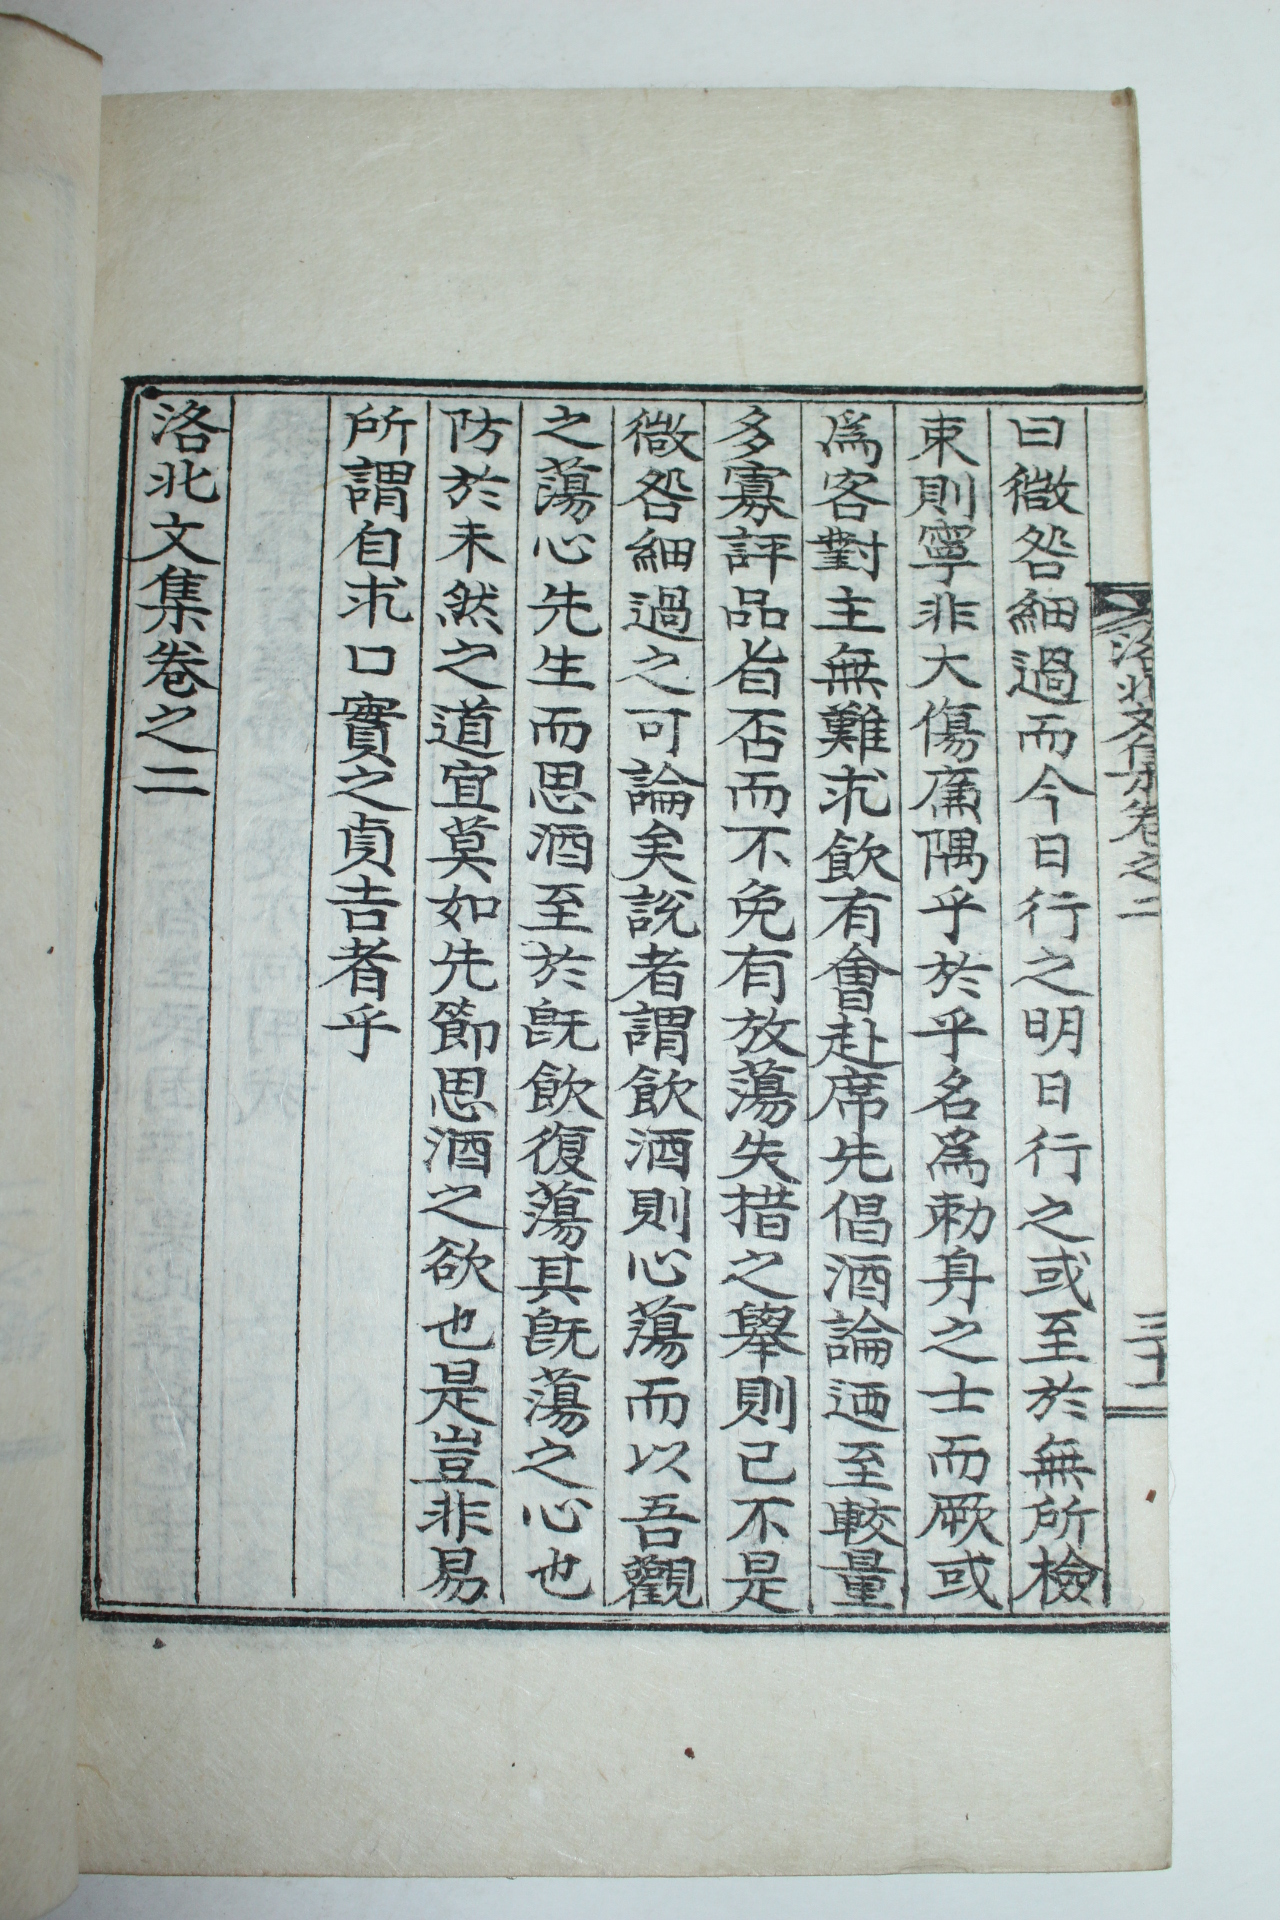 曰微咎細過而今日行之明日行之或至於無所檢
束則寧非大傷廉隅乎於乎名爲勅身之士而厥或
爲客對主無難求飮有會赴席先倡酒論迺至較量
多寡評品旨否而不免有放蕩失措之擧則已不是
微咎細過之可論矣說者謂飮酒則心蕩而以吾觀
之蕩心先生而思酒至於旣飮復蕩其旣蕩之心也
防於未然之道宜莫如先節思酒之欲也是豈非易
所謂自求口實之貞吉者乎
洛北文集卷之二
洛北文集卷之二
三十一